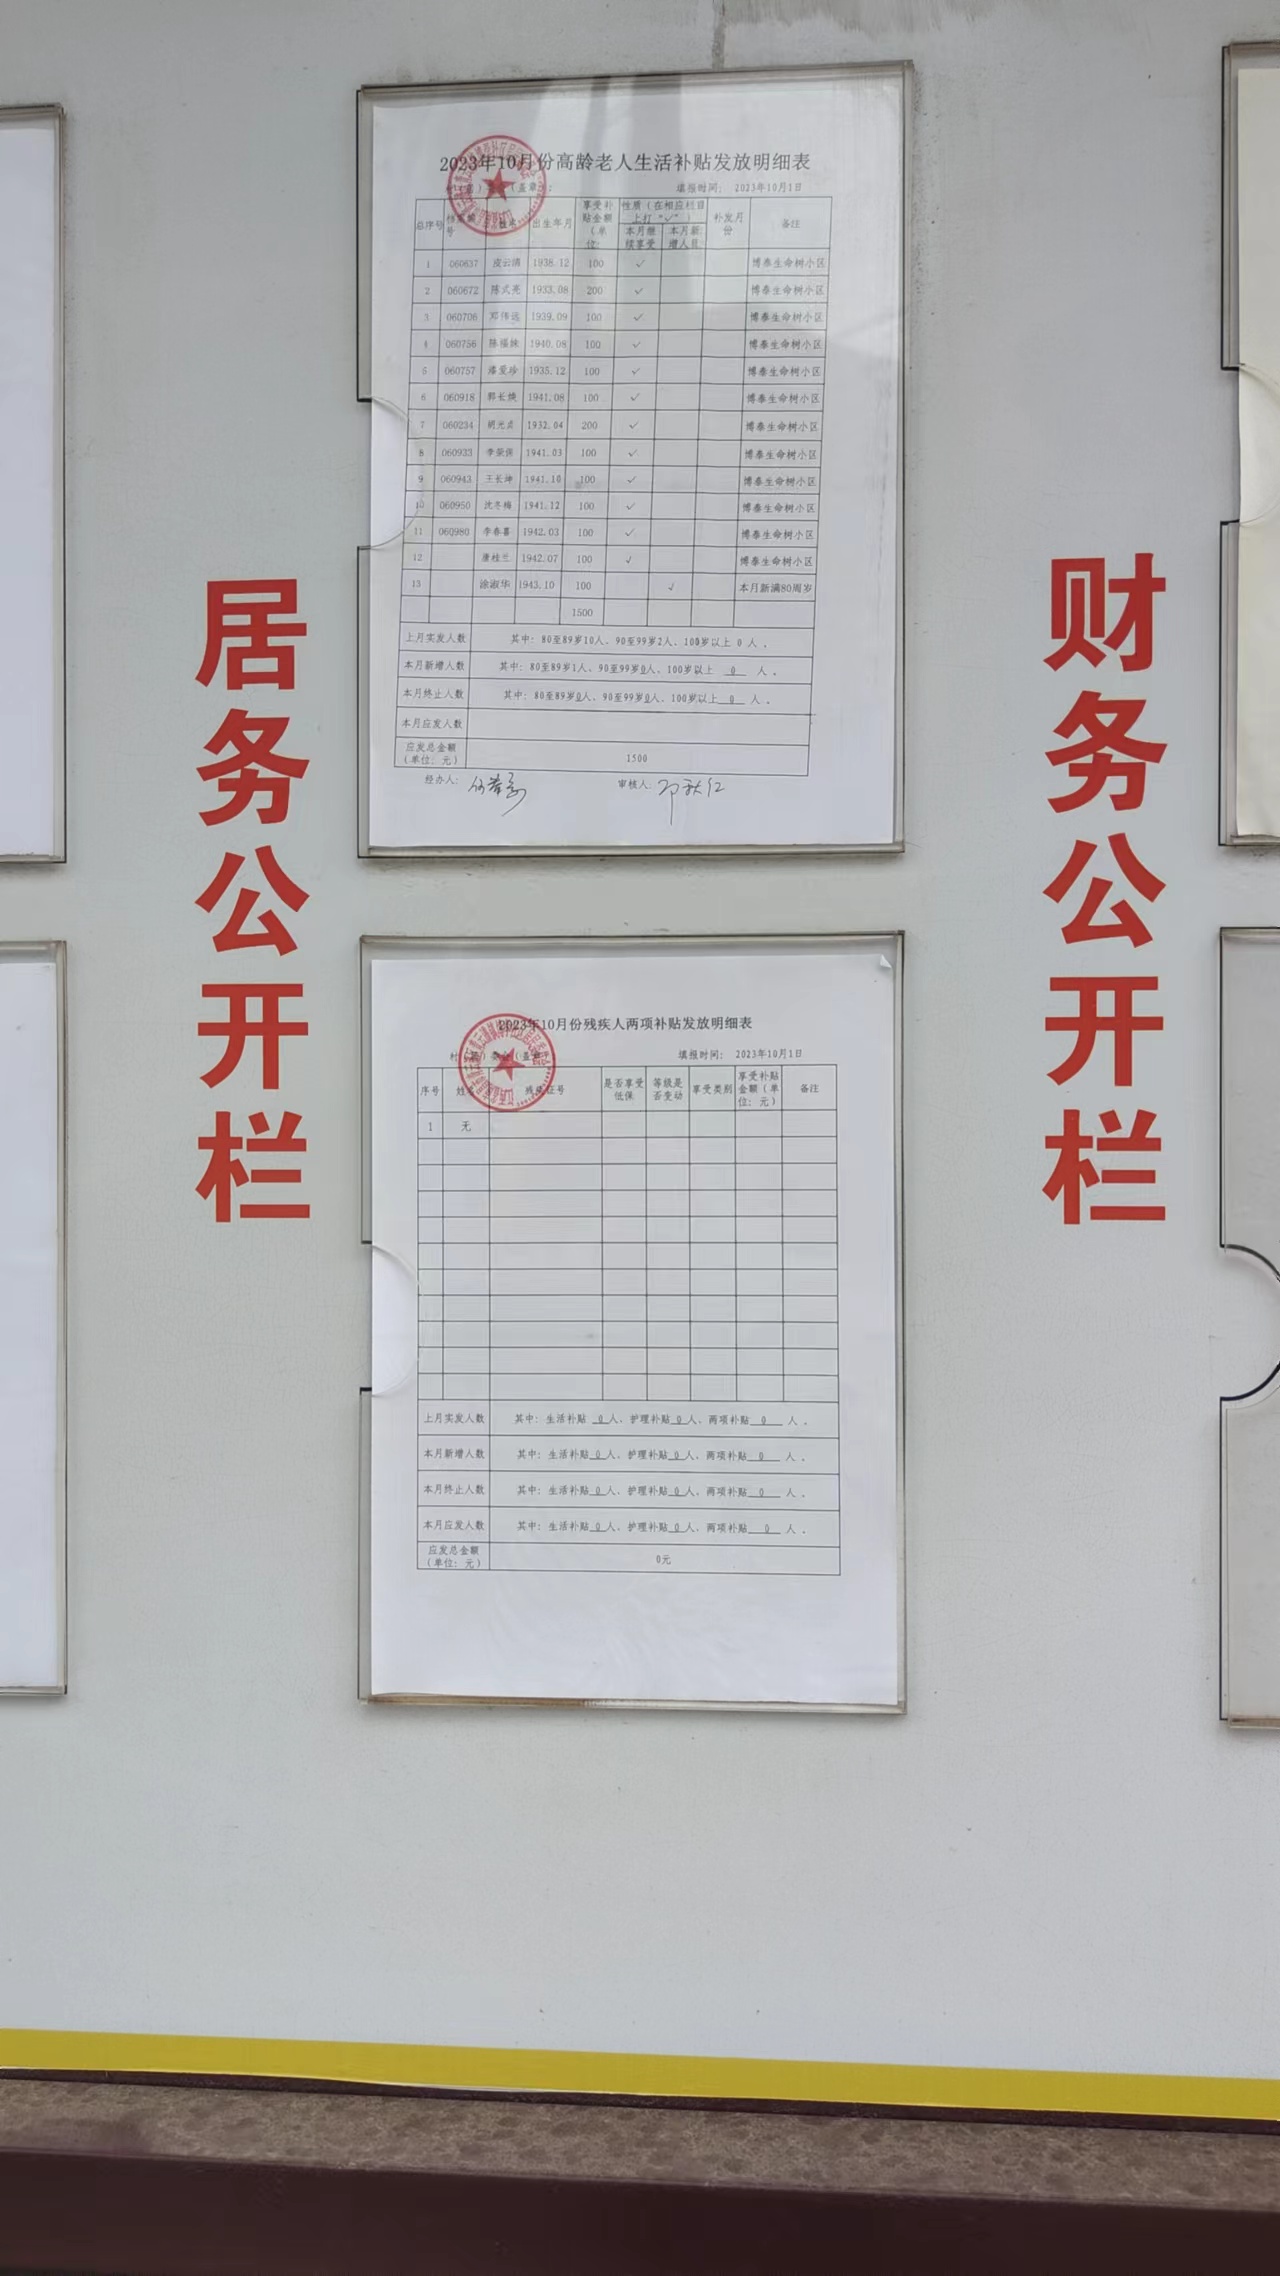 居务公开栏
2023年10月份高龄老人生活补贴发放明细表
填报时间： 2023年10月1日
总序号 出生年月 享受补贴金额（单位： 性质（在相应栏目上打“✓”） 补发月份 备注
本月继续享受 本月新增人员
1 060637 皮云清 1938.12 100 ✓ 博泰生命树小区
2 060672 陈式亮 1933.08 200 ✓ 博泰生命树小区
3 060706 邓伟远 1939.09 100 ✓ 博泰生命树小区
4 060756 陈福妹 1940.08 100 ✓ 博泰生命树小区
5 060757 潘爱珍 1935.12 100 ✓ 博泰生命树小区
6 060918 郭长焕 1941.08 100 ✓ 博泰生命树小区
7 060234 胡光贞 1932.04 200 ✓ 博泰生命树小区
8 060933 李荣保 1941.03 100 ✓ 博泰生命树小区
9 060943 王长坤 1941.10 100 ✓ 博泰生命树小区
10 060950 沈冬梅 1941.12 100 ✓ 博泰生命树小区
11 060980 李春喜 1942.03 100 ✓ 博泰生命树小区
12 康桂兰 1942.07 100 ✓ 博泰生命树小区
13 涂淑华 1943.10 100 ✓ 本月新满80周岁
1500
上月实发人数 其中：80至89岁10人、90至99岁2人、100岁以上 0 人。
本月新增人数 其中：80至89岁1人、90至99岁0人、100岁以上 0 人。
本月终止人数 其中：80至89岁0人、90至99岁0人、100岁以上 0 人。
本月应发人数
应发总金额（单位：元） 1500
经办人： 审核人：邓秋红
2023年10月份残疾人两项补贴发放明细表
填报时间： 2023年10月1日
序号 姓名 残疾证号 是否享受低保 等级是否变动 享受类别 享受补贴金额（单位：元） 备注
1 无
上月实发人数 其中：生活补贴 0 人、护理补贴 0 人、两项补贴 0 人。
本月新增人数 其中：生活补贴 0 人、护理补贴 0 人、两项补贴 0 人。
本月终止人数 其中：生活补贴 0 人、护理补贴 0 人、两项补贴 0 人。
本月应发人数 其中：生活补贴 0 人、护理补贴 0 人、两项补贴 0 人。
应发总金额（单位：元） 0元
财务公开栏